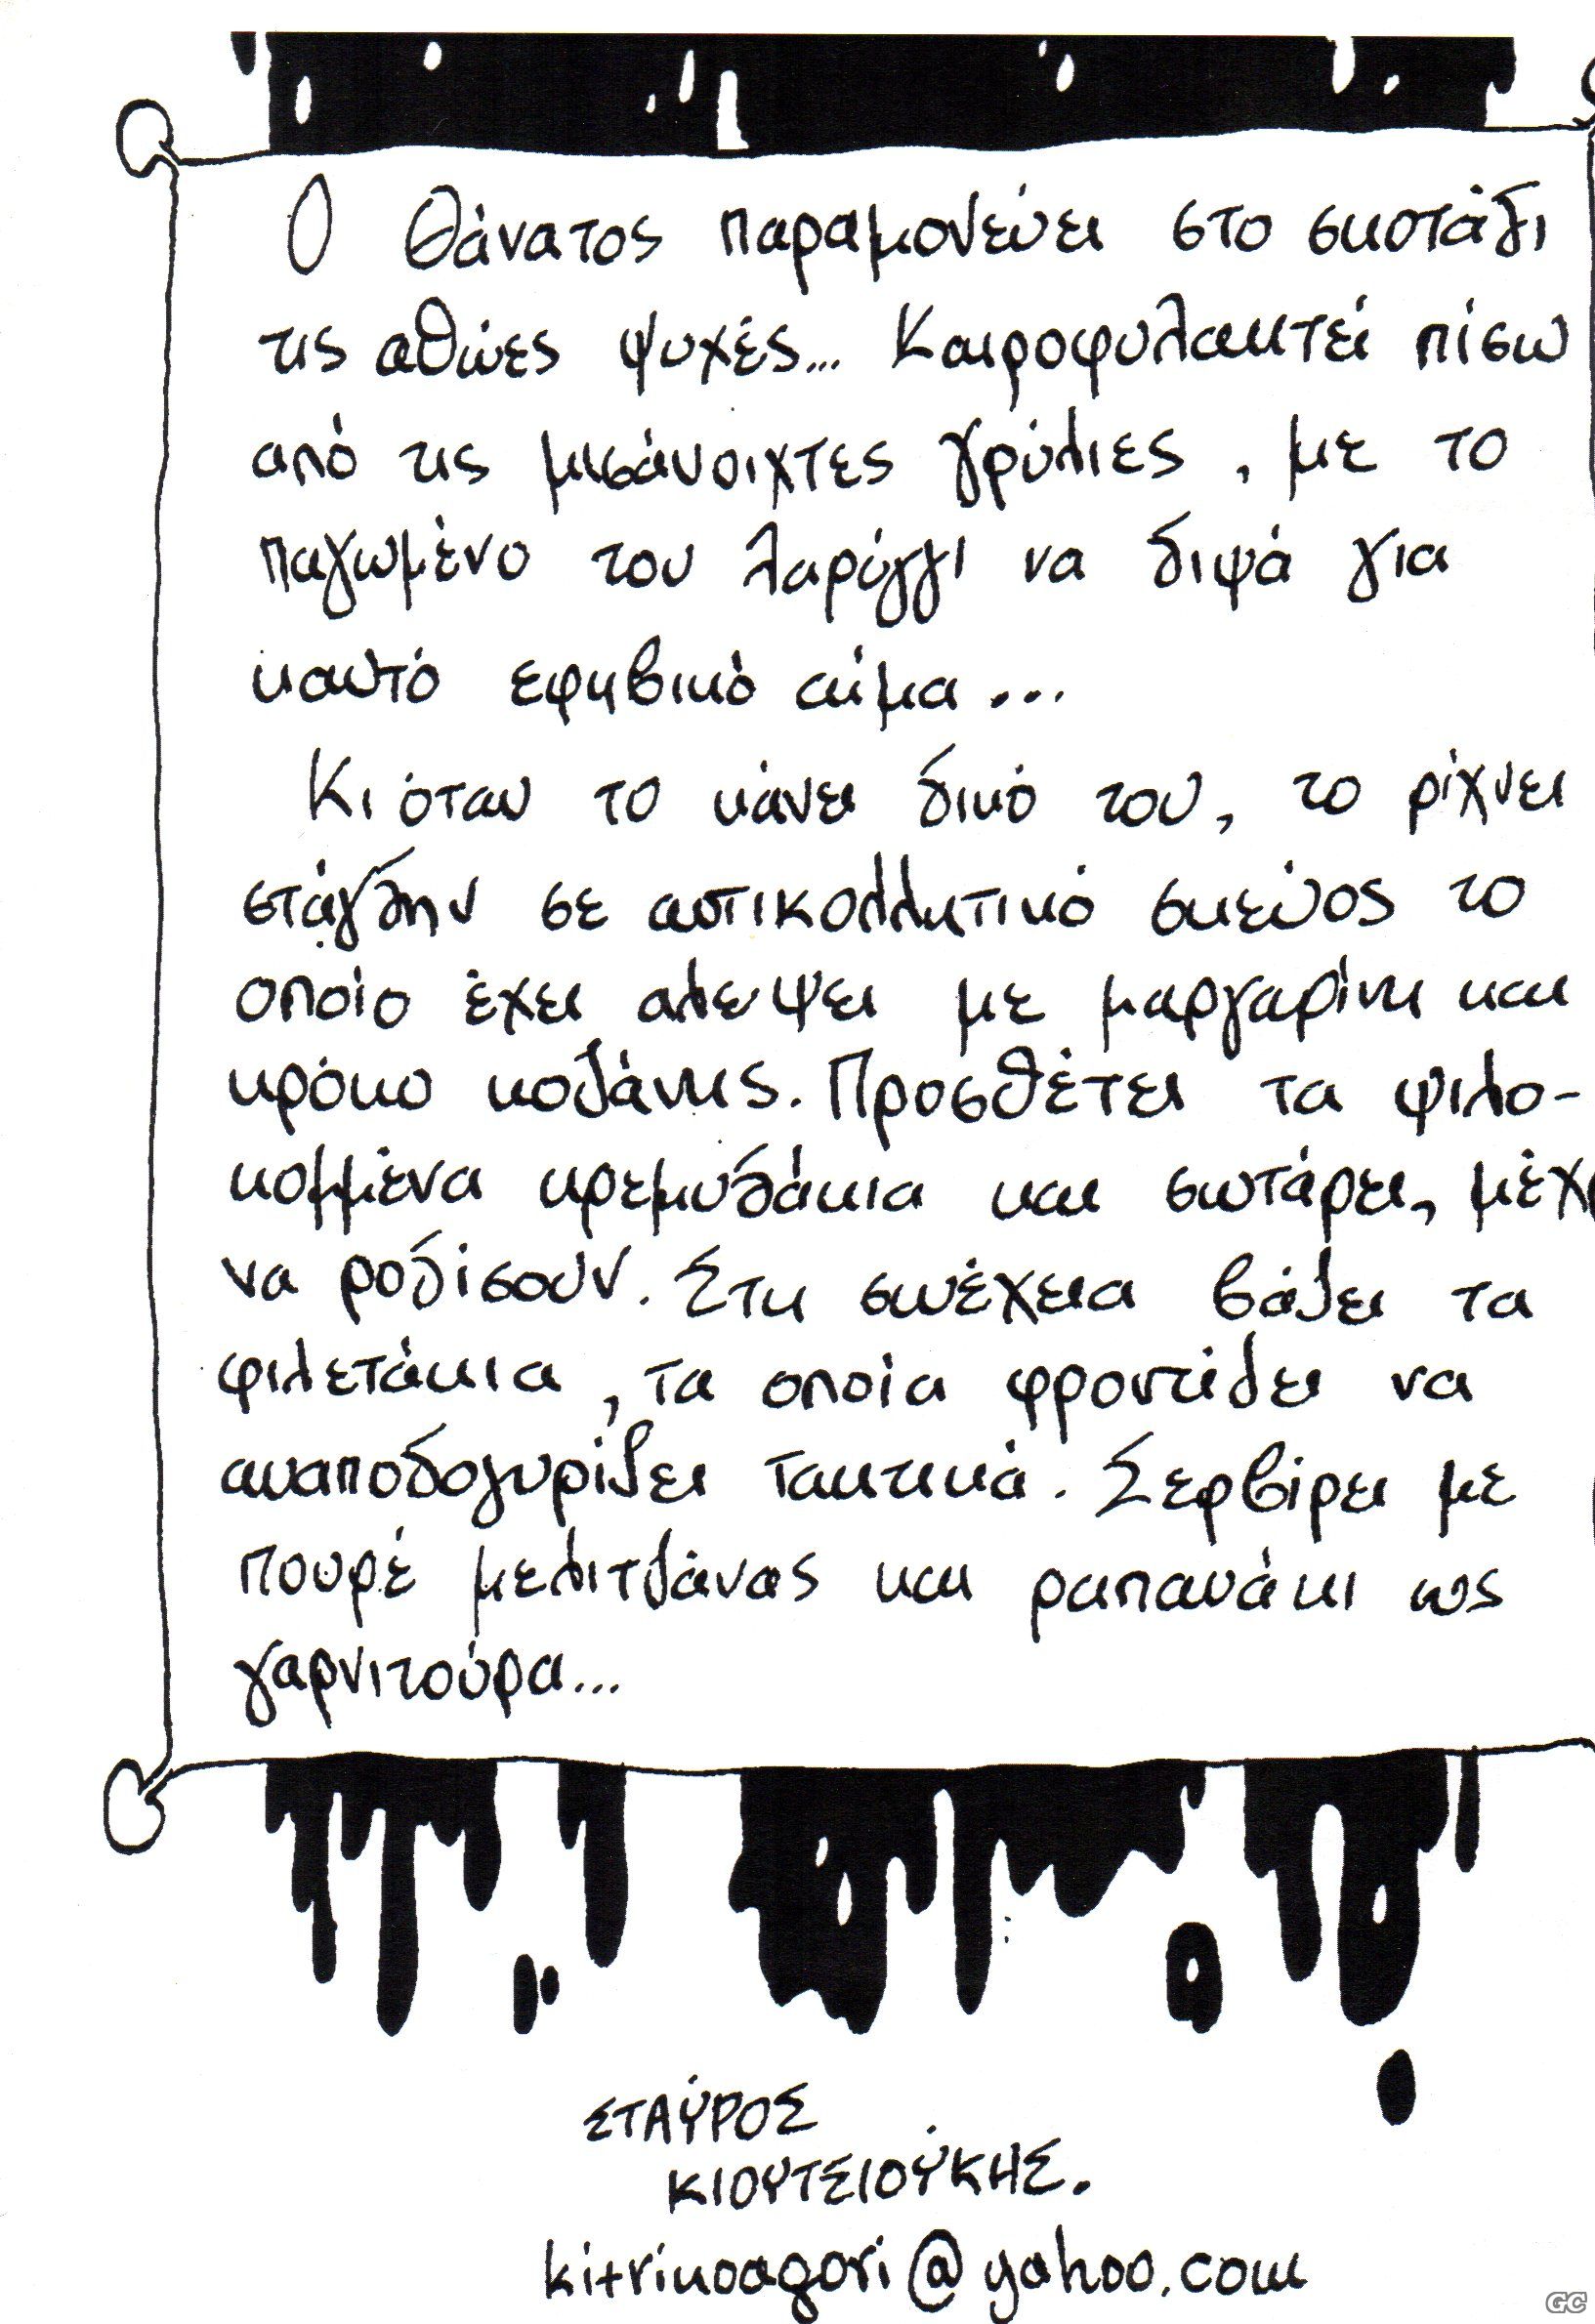 Ο θάνατος παραμονεύει στο σκοτάδι
τις αθώες ψυχές... Καιροφυλακτεί πίσω
από τις μισάνοιχτες γρύλιες, με το
παγωμένο του λαρύγγι να διψά για
καυτό εφηβικό αίμα...
Κι όταν το κάνει δικό του, το ρίχνει
στάγδην σε αντικολλητικό σκεύος το
οποίο έχει αλείψει με μαργαρίνη και
κρόκο κοζάνης. Προσθέτει τα ψιλο-
κομμένα κρεμυδάκια και σωτάρει, μέχρ
να ροδίσουν. Στη συνέχεια βάζει τα
φιλετάκια, τα οποία φροντίζει να
αναποδογυρίζει τακτικά. Σερβίρει με
πουρέ μελιτζάνας και ραπανάκι ως
γαρνιτούρα...
ΣΤΑΎΡΟΣ
ΚΙΟΥΤΣΙΟΎΚΗΣ.
kitrinoagori@yahoo.com
GC